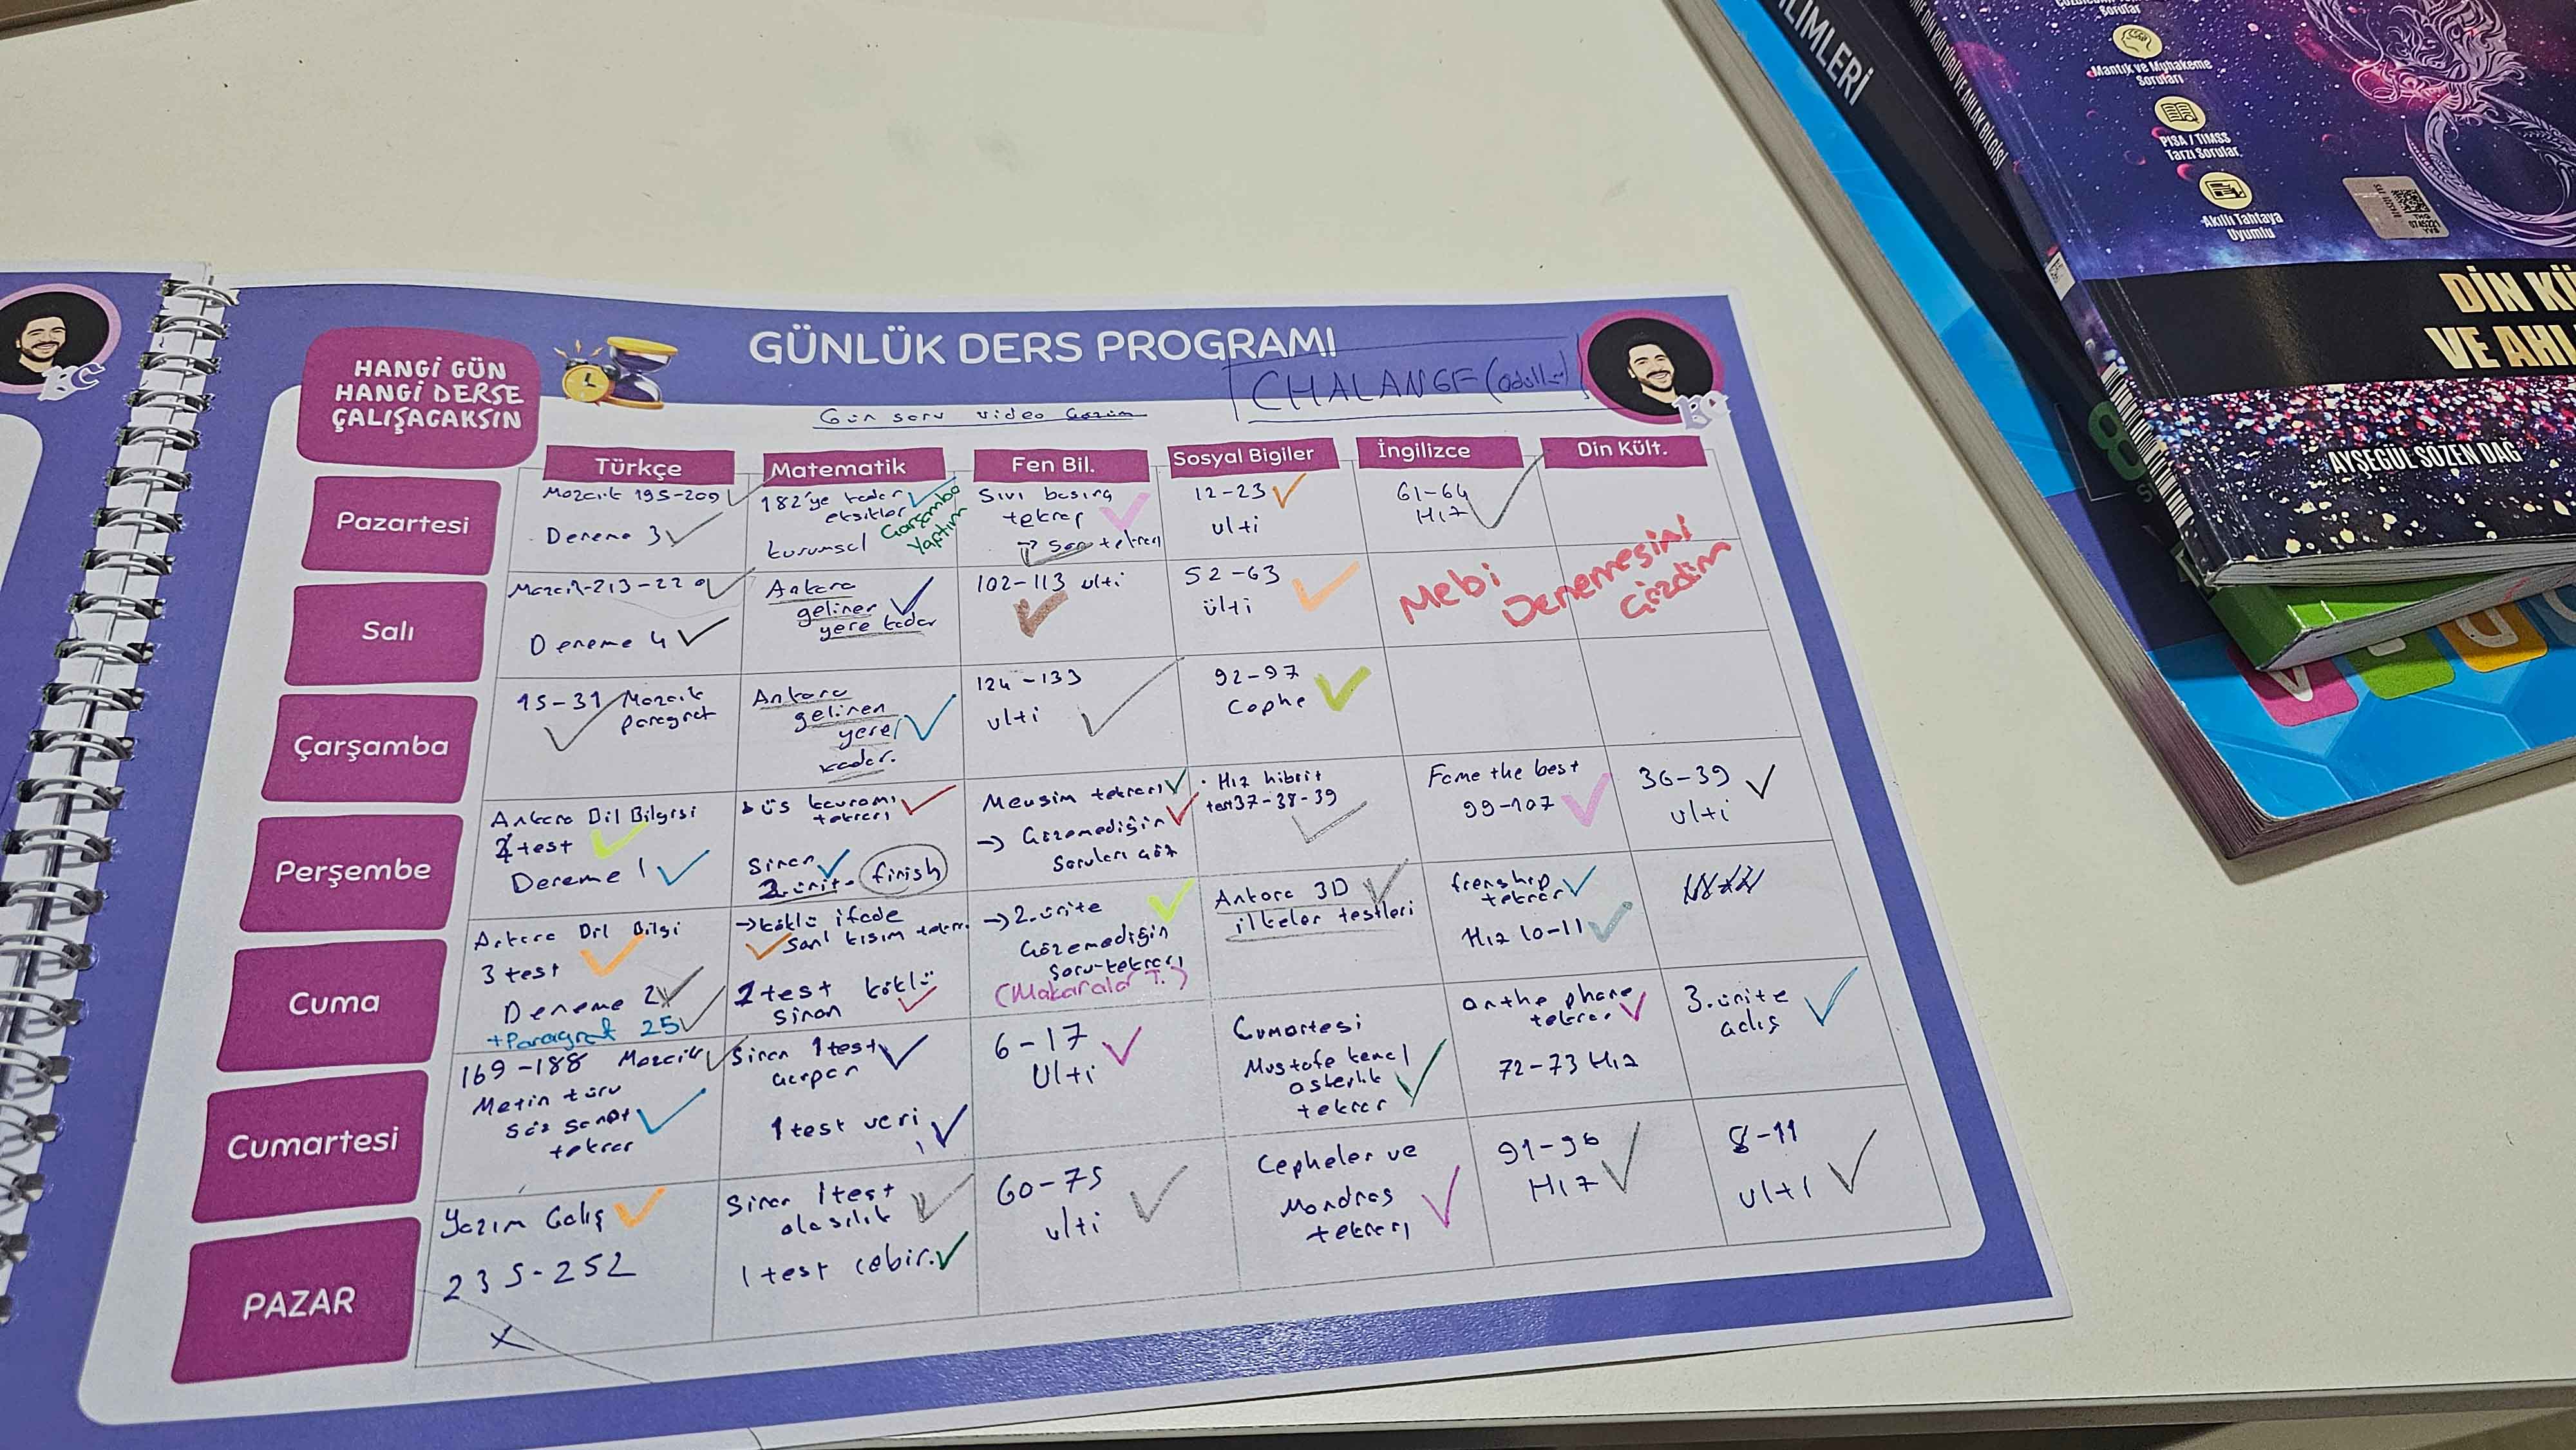 HANGİ GÜN
HANGİ DERSE
ÇALIŞACAKSIN
GÜNLÜK DERS PROGRAMI
CHALANGE
Gün soru video çözüm
BC
BC
Türkçe
Matematik
Fen Bil.
Sosyal Bigiler
İngilizce
Din Kült.
Pazartesi
Mozaik 195-209
Deneme 3
182'ye kadar
eksikler
Çarşamba
Yaptım
kurumsal
Sıvı basınç
tekrar
→ son tekrarı
12-23
ulti
61-64
Hız
Salı
Mozaik-213-229
Deneme 4
Ankara
gelinen
yere kadar
102-113 ulti
52-63
ülti
Mebi
Denemesini
Çözdüm
Çarşamba
15-31 Mozaik
paragraf
Ankara
gelinen
yere
kadar.
124-133
ulti
92-97
Cephe
Perşembe
Ankara Dil Bilgisi
test
Deneme 1
üs kavramı
tekrarı
Sinan
2. ünite finish
Mevsim tekrarı
→ Çözemediğin
Soruları çöz
Hız hibrit
test 37-38-39
Fame the best
99-107
36-39
ulti
Cuma
Ankara Dil Bilgi
3 test
Deneme 2
+Paragraf 25
→köklü ifade
Sarı kısım tekrar
1 test köklü
Sinan
→2. ünite
Çözemediğin
Soru-tekrarı
(Makaralar T.)
Ankara 3D
ilkeler testleri
frenship
tekrar
Hız 10-11
Cumartesi
169-188 Mozaik
Metin türü
Söz sanat
tekrar
Sinan 1 test
çarpan
1 test veri
6-17
Ulti
Cumartesi
Mustafa kemal
askerlik
tekrar
on the phone
tekrar
72-73 Hız
3. ünite
çalış
PAZAR
Yazım Çalış
235-252
X
Sinan 1 test
olasılık
1 test cebir.
60-75
ulti
Cepheler ve
Mondros
tekrarı
91-96
Hız
8-11
ulti
LİMLERİ
DİN KÜLTÜRÜ VE AHLAK BİLGİSİ
Sorular
Mantık ve Muhakeme
Soruları
PISA / TIMSS
Tarzı Sorular
Akıllı Tahtaya
Uyumlu
DİN KÜ
VE AHL
AYŞEGÜL SÖZEN DAĞ
8